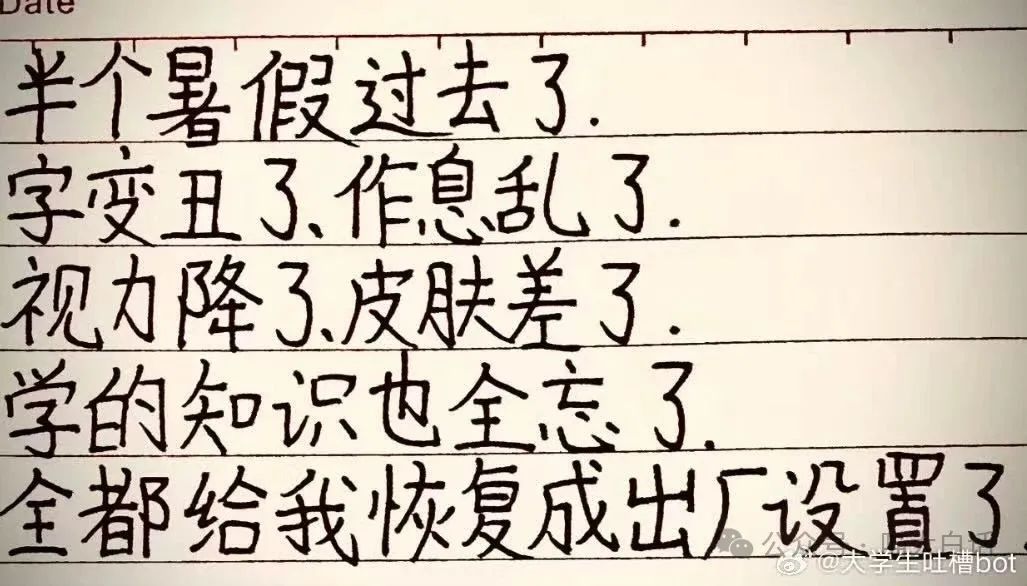 Date
半个暑假过去了.
字变丑了、作息乱了.
视力降了、皮肤差了.
学的知识也全忘了.
全都给我恢复成出厂设置了.
公众号
@大学生吐槽bot